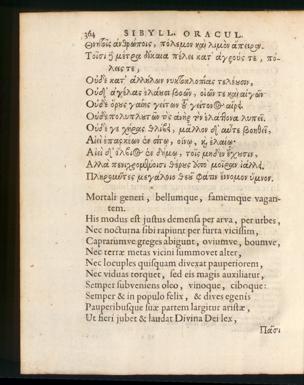 364 SIBYLL. ORACUL.
Θνητοῖς ἀνθρώποις, πόλεμον καὶ λιμὸν ἄπειρον.
Τοῖσι μέτρα δίκαια πέλει κατ' ἀγρούς τε, πό-
λεις τε,
Οὐδὲ κατ' ἀλλήλων νυκτοκλοπίας τελέουσιν,
Οὐδ' ἀγέλας ἐλάουσι βοῶν, ὀΐων τε καὶ αἰγῶν
Οὐδὲ ὅρους γαίης γείτων γείτονος αἴρει.
Οὐδὲ πολυπλουτῶν τις ἀνὴρ τὸν ἐλάττονα λυπεῖ.
Οὐδέ γε χήρας θλίβει, μᾶλλον δ' αὖτε βοηθεῖ,
Αἰεὶ ἐπαρκείων σίτῳ, οἴνῳ, καὶ ἐλαίῳ
Αἰεὶ δήμῳ, τοῖς μηδὲν ἔχουσιν,
Ἀλλὰ πενιχρομένοισι θέρους μοῖραν ἰάλλει,
Πληροῦντες μεγάλοιο θεοῦ φάτιν ἔννομον ὕμνον.
Mortali generi, bellumque, famemque vagan-
tem.
His modus est justus demensa per arva, per urbes,
Nec nocturna sibi rapiunt per furta vicissim,
Caprarumve greges abigunt, oviumve, boumve,
Nec terræ metas vicini summovet alter,
Nec locuples quisquam divexat pauperiorem,
Nec viduas torquet, sed eis magis auxiliatur,
Semper subveniens oleo, vinoque, ciboque:
Semper & in populo felix, & dives egenis
Pauperibusque suæ partem largitur aristæ,
Ut fieri jubet & laudat Divina Dei lex,
Πᾶσι